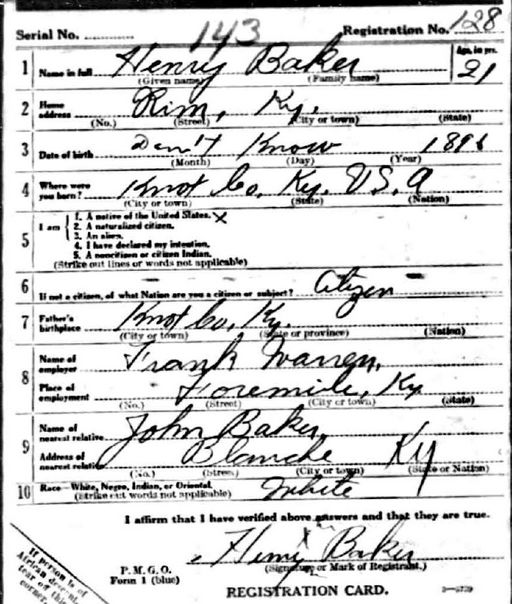 Serial No. 143 Registration No. 128
1 Name in full Henry Baker Age, in yrs. 21
(Given name) (Family name)
2 Home address Rim, Ky.
(No.) (Street) (City or town) (State)
3 Date of birth Don't Know 1896
(Month) (Day) (Year)
4 Where were you born? Knot Co. Ky. U.S.A
(City or town) (State) (Nation)
5 I am
1. A native of the United States. X
2. A naturalized citizen.
3. An alien.
4. I have declared my intention.
5. A noncitizen or citizen Indian.
(Strike out lines or words not applicable)
6 If not a citizen, of what Nation are you a citizen or subject? Citizen
7 Father's birthplace Knot Co, Ky.
(City or town) (State or province) (Nation)
8 Name of employer Frank Warren,
Place of employment Foremile, Ky
(No.) (Street) (City or town) (State)
9 Name of nearest relative John Baker
Address of nearest relative Blanche Ky
(No.) (Street) (City or town) (State or Nation)
10 Race—White, Negro, Indian, or Oriental White
(Strike out words not applicable)
I affirm that I have verified above answers and that they are true.
Henry X Baker
P. M. G. O. (Signature or Mark of Registrant.)
Form 1 (blue)
REGISTRATION CARD.
If person is of
African descent,
tear off this
corner.